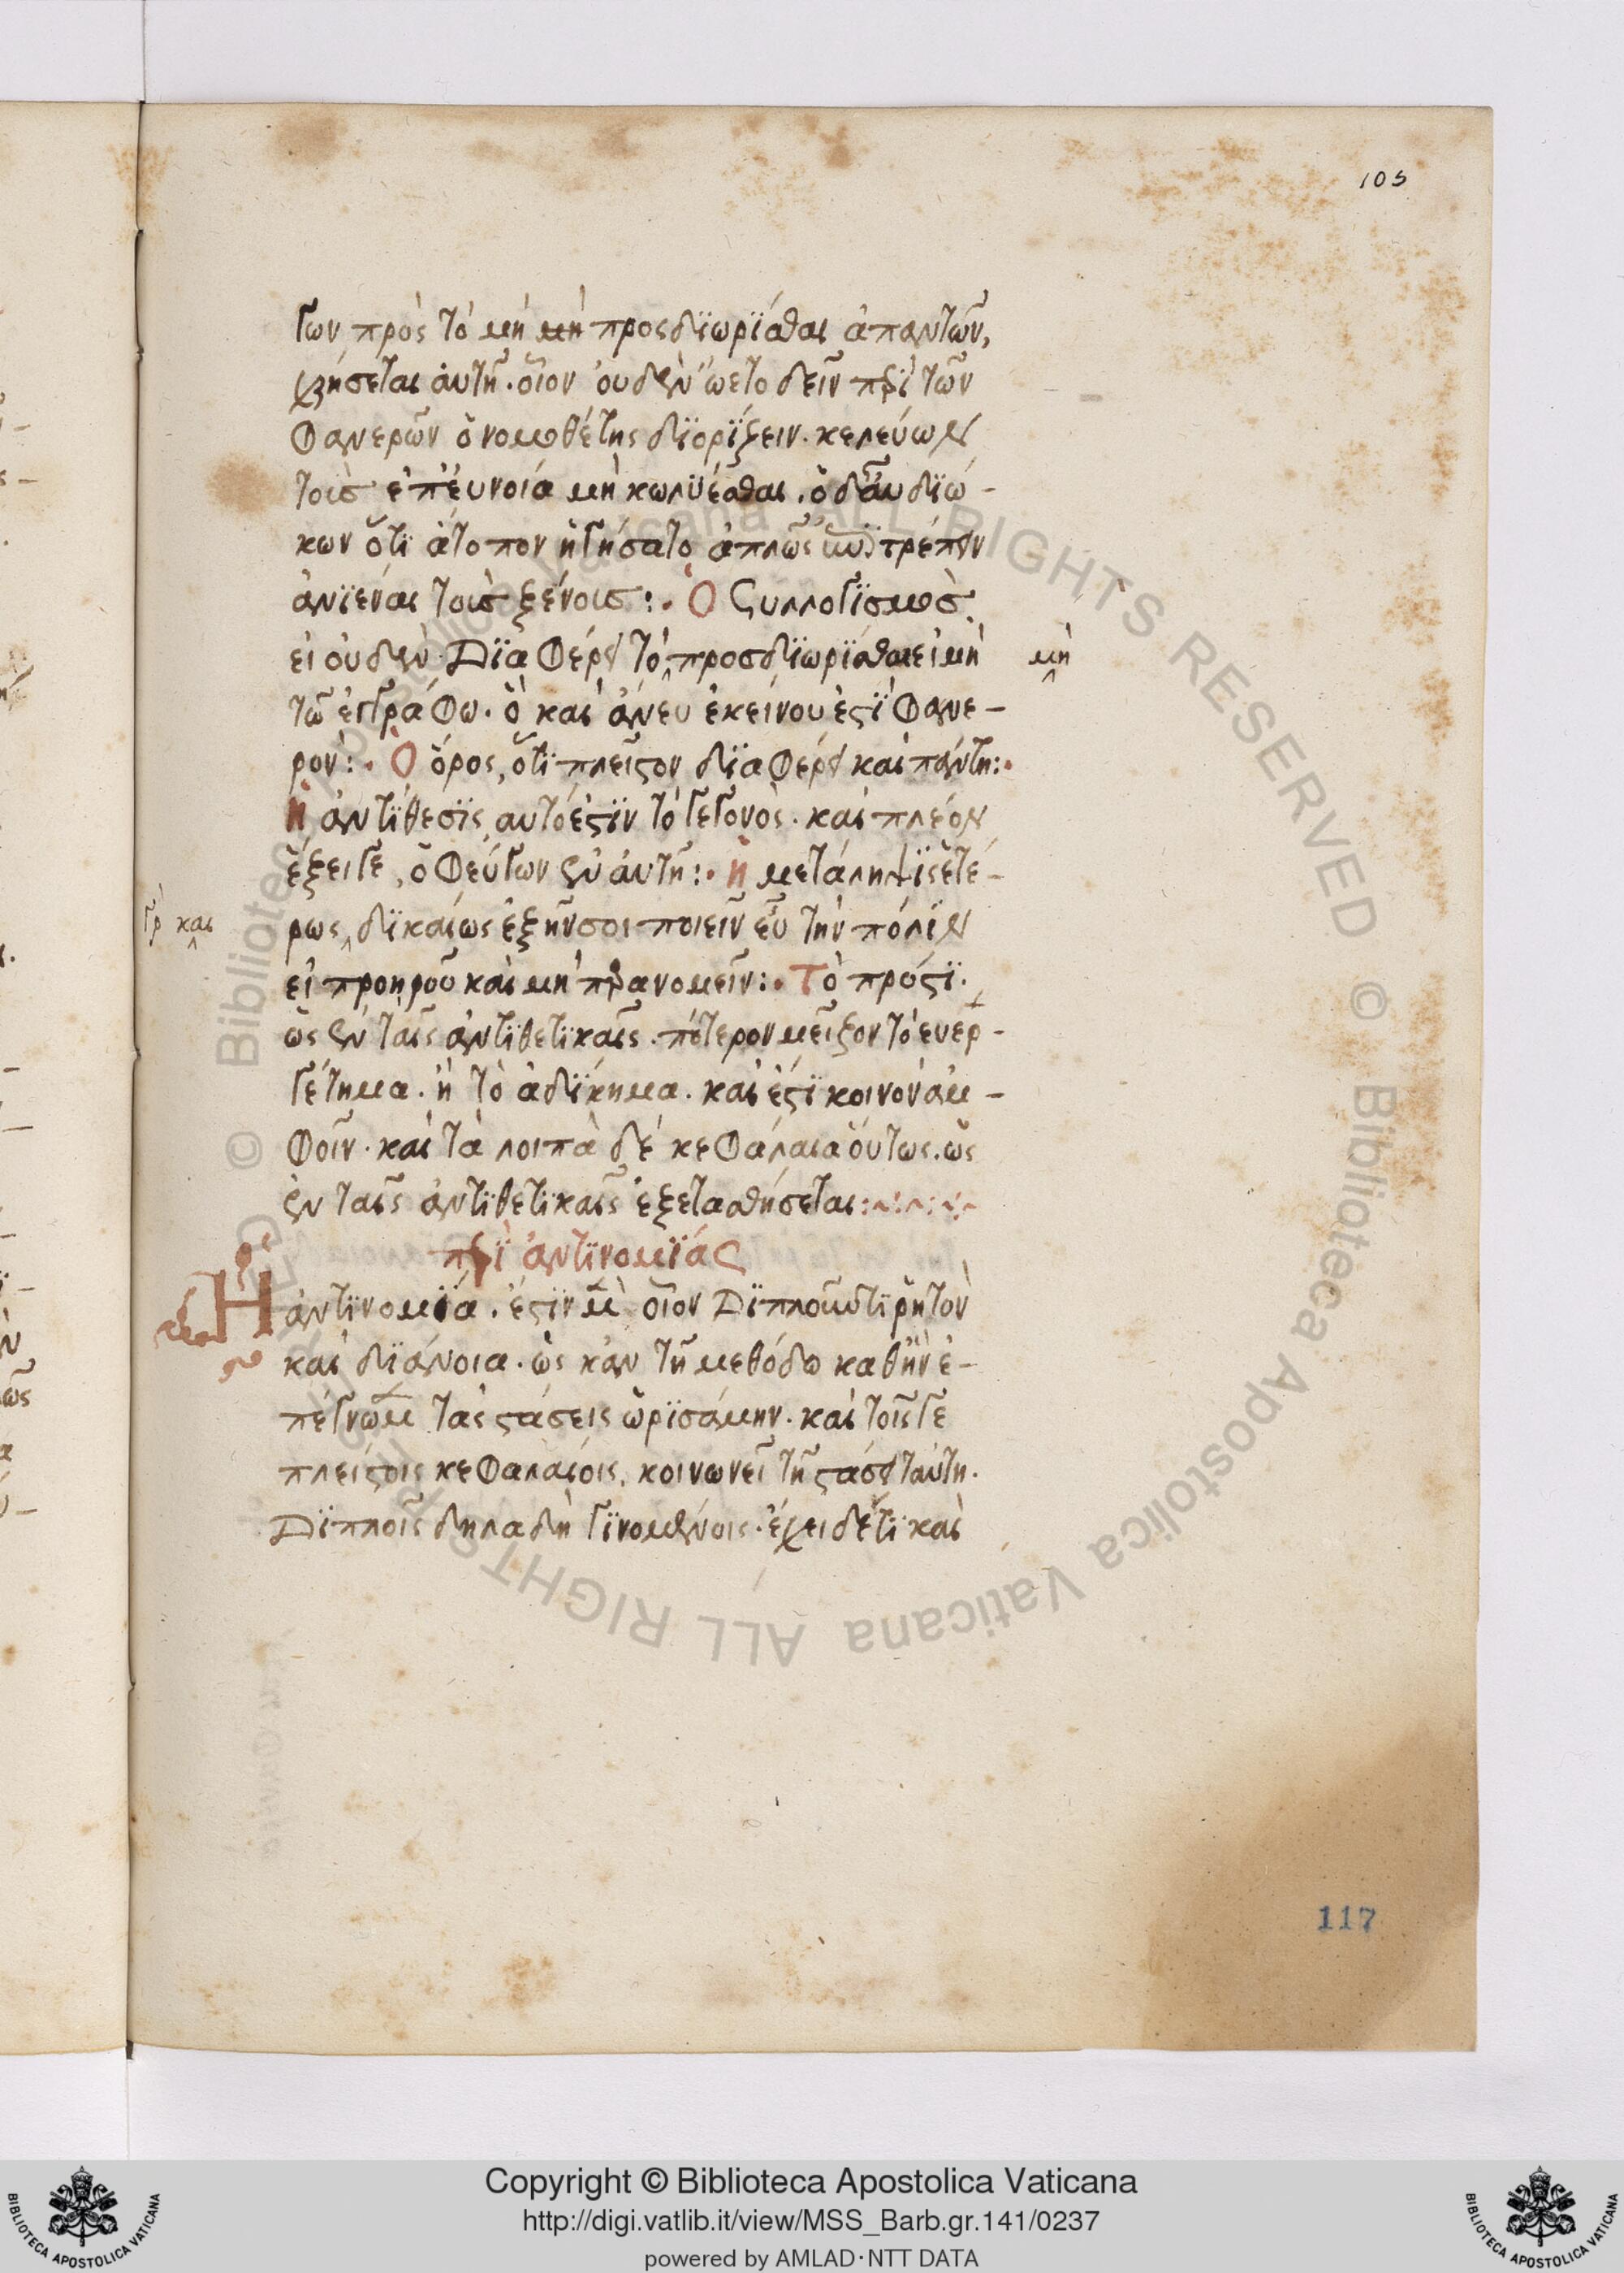 105
γων πρὸς τὸ μὴ μὴ προσδϊωρίσθαι ἀπαντῶν,
χρήσεται ἀυτῇ. οἷον ὀυδὲν ὤετο δεῖν περὶ τῶν
φανερῶν ὁ νομοθέτης διορίζειν. κελεύων
τοῖς ἐπ ἐυνοία μὴ κωλϋέσθαι. ὁ δ ἂυ διώ-
κων ὅτι ἄτοπον ἡγήσατο ἁπλῶς τρέπειν
ἀνϊέναι τοῖς ξένοις:. Ὁ Συλλογϊσμὸς
εἰ ὀυδὲν Διαφέρει τὸ προσδιωρίσθαι εἰ μὴ
μὴ
τῶ ἐγγράφω. ὃ καὶ ἄνευ ἐκείνου ἐστὶ φανε-
ρόν:. Ὁ ὅρος, ὅτι πλεῖστον διαφέρει καὶ πάντη:.
Ἡ ἀντίθεσις, αυτό ἐστιν τὸ γεγονὸς. καὶ πλέον
ἕξει γε, ὁ φεύγων ἐν ἀυτῇ:. ἡ μετάληψις ἑτέ-
γρ καὶ
ρως, δικαίως ἐξῆν σοι ποιεῖν ἐυ τὴν πόλιν
εἰ προηροῦ καὶ μὴ παρανομεῖν:. Τὸ πρός τι.
ὡς ἐν ταῖς ἀντιθετικαῖς. πότερον μεῖζον τὸ ἐυερ-
γέτημα. ἢ τὸ ἀδίκημα. καὶ ἔστι κοινὸν ἀμ-
φοῖν. καὶ τὰ λοιπὰ δὲ κεφάλαια ὅυτως. ὡς
ἐν ταῖς ἀντιθετικαῖς ἐξετασθήσεται:~:~:~
περὶ ἀντινομίας
Ἡ ἀντινομία. ἔστιν μὲν οἷον Διπλοῦν τι ῥητὸν
καὶ διάνοια. ὡς κἀν τῇ μεθόδω καθ ἣν ἐ-
πέγνωμεν τὰς στάσεις ὡρισάμην. καὶ τοῖς γε
πλείστοις κεφαλαίοις. κοινωνεῖ τῇ στάσει ταύτη.
Διπλοῖς δηλαδὴ γινομένοις. ἔχει δέ τι καὶ
117
Copyright © Biblioteca Apostolica Vaticana
http://digi.vatlib.it/view/MSS_Barb.gr.141/0237
powered by AMLAD·NTT DATA